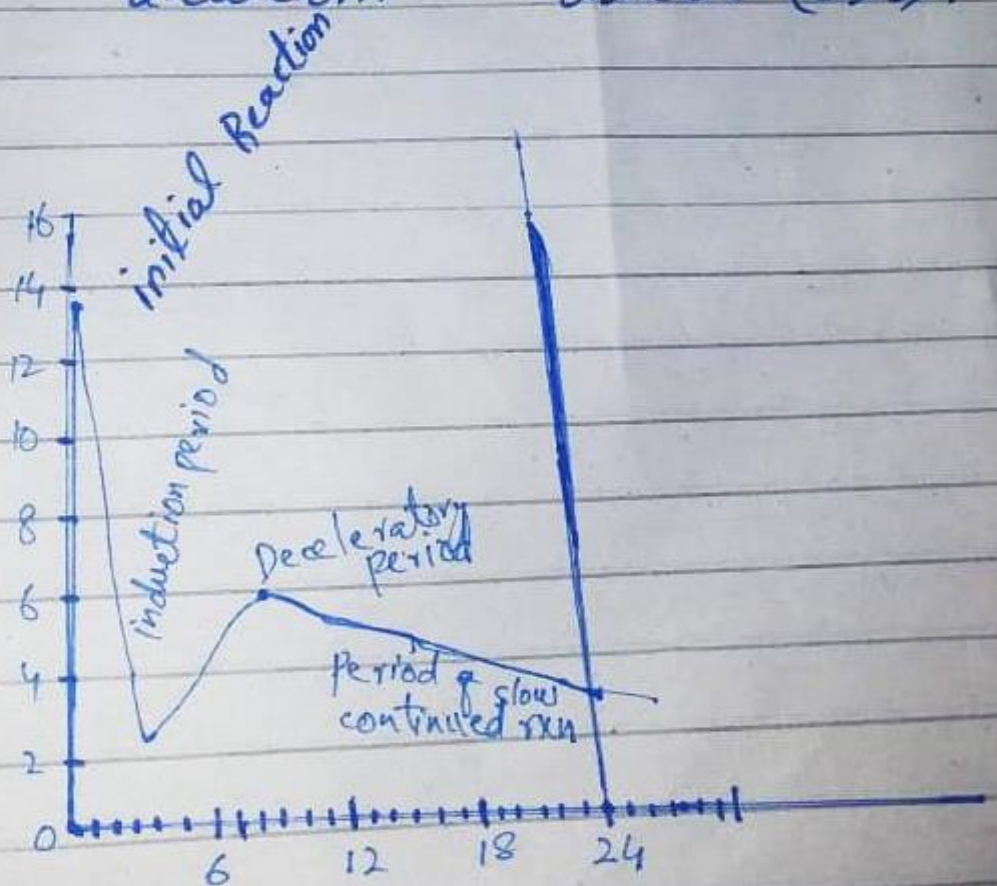 initial Reaction
16
14
12
10
8
6
4
2
0
induction period
Deceleratory
period
Period of slow
continued rxn
6
12
18
24